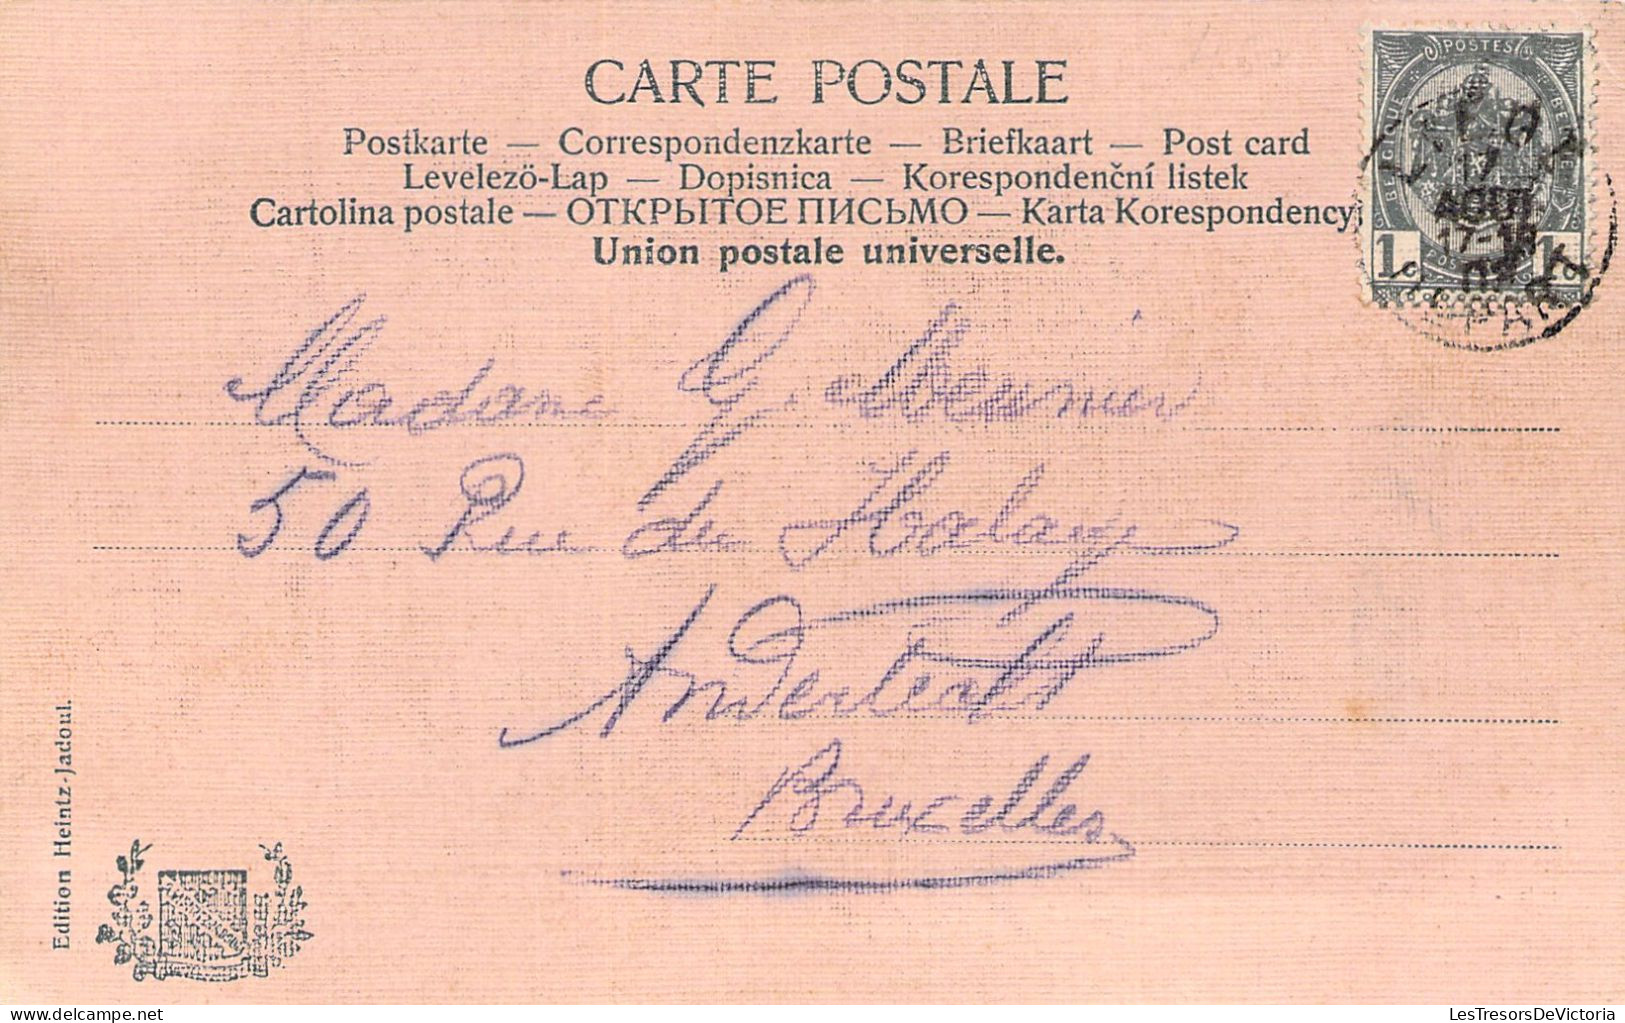 CARTE POSTALE
Postkarte — Correspondenzkarte — Briefkaart — Post card
Levelezö-Lap — Dopisnica — Korespondenční listek
Cartolina postale — ОТКРЫТОЕ ПИСЬМО — Karta Korespondency
Union postale universelle.
POSTES
BELGIQUE
1 1
17
AOUT
17-18
DEPART
Madame G. Meunier
50 Rue du
Anderlecht
Bruxelles
Edition Heintz-Jadoul.
LesTresorsDeVictoria